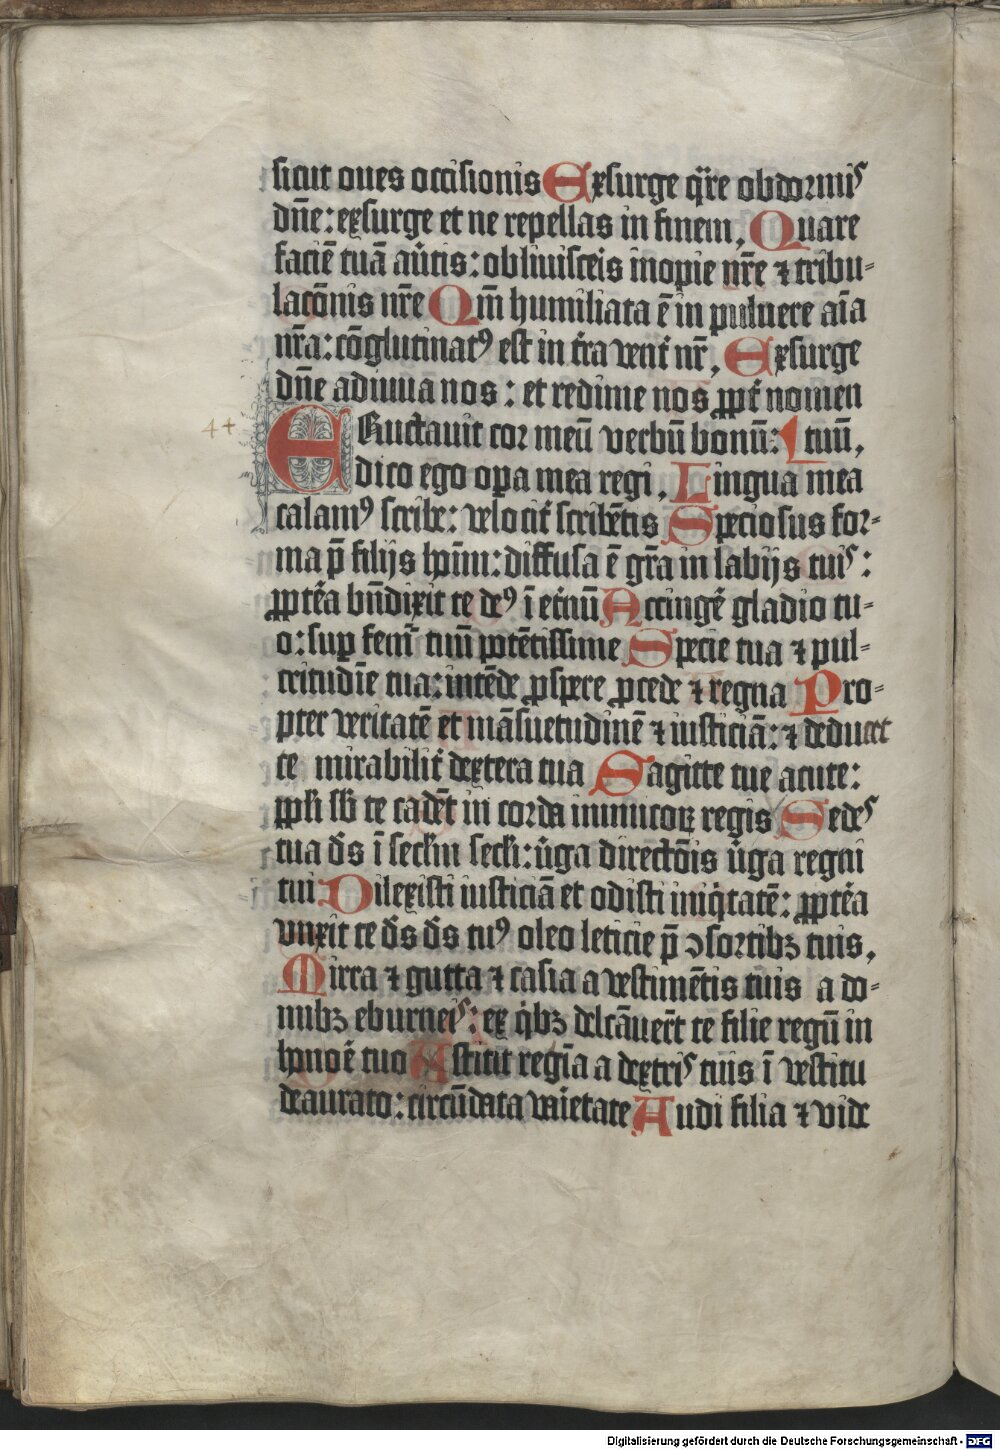 sicut oues occisionis Exsurge q̄re obdormis
dn̄e: exsurge et ne repellas in finem. Quare
faciē tuā au͛tis: obliuisceis inopie nr̄e ⁊ tribu-
lacōnis nr̄e Qm̄ humiliata ē in puluere aīa
nr̄a: cōglutinatꝰ est in t͛ra vent͛ nr̄, Exsurge
dn̄e adiuua nos: et redime nos ꝓpt͛ nomen
44 ERuctauit cor meū verbū bonū: tuū,
dico ego oꝑa mea regi, Lingua mea
calamꝰ scribe: velocit͛ scribētis Speciosus for-
ma p̄ filijs hoīm: diffusa ē gr̄a in labijs tuis:
ꝓpt͛ea bn̄dixit te deꝰ ī et͛nū Accinge͛ gladio tu-
o: suꝑ femꝰ tuū potētissime Specie tua ⁊ pul-
critudīe tua: intēde ꝓspere ꝓcede ⁊ regna Pro-
pter veritatē et māsuetudinē ⁊ iusticiā: ⁊ deducet
te mirabilit͛ dextera tua Sagitte tue acute:
ppl̄i sb̄ te cadēt in corda inimicoꝝ regis Sedes
tua ds̄ ī secl̄m secl̄i: u͛ga directōis u͛ga regni
tui Dilexisti iusticiā et odisti iniq̇tatē: ꝓpt͛ea
vnxit te ds̄ ds̄ tuꝰ oleo leticie p̄ ↄsortibꝫ tuis,
Mirra ⁊ gutta ⁊ casia a vestimētis tuis a do-
mibꝫ eburneis: ex q̇bꝫ delcāuer̄t te filie regū in
honoē tuo Astitit regīa a dextris tuis ī vestitu
deaurato: circūdata vaietate Audi filia ⁊ vide
Digitalisierung gefördert durch die Deutsche Forschungsgemeinschaft - DFG